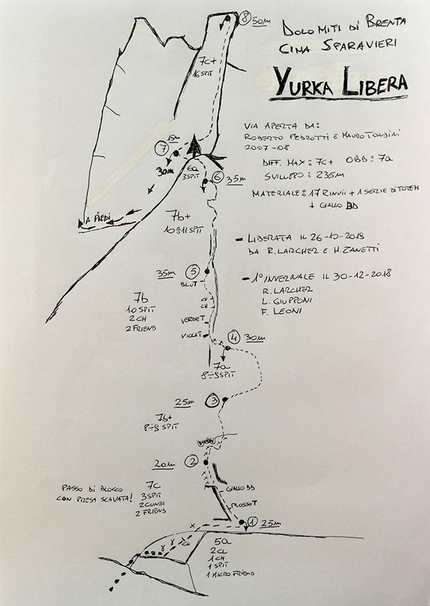 DOLOMITI DI BRENTA
CIMA SPARAVIERI
YURKA LIBERA
VIA APERTA DA:
ROBERTO PEDROTTI E MAURO TONDINI
2007-08
DIFF. MAX: 7c+ OBB: 7a
SVILUPPO: 235m
MATERIALE: 17 RINVII + 1 SERIE DI TOTEM
+ GIALLO BD
- LIBERATA IL 26-10-2018
DA R. LARCHER E H. ZANETTI
- 1° INVERNALE IL 30-12-2018
R. LARCHER
L. GIUPPONI
F. LEONI
8 50m
7c+
16 SPIT
15m
7
30m
6a
3 SPIT
6 35m
A PIEDI
7b+
10÷11 SPIT
35m 5
BLUT
CH
CH
7b
10 SPIT
2 CH
2 FRIEND
VERDE T
VIOLA T
4 30m
7a
8÷9 SPIT
25m 3
7b+
8÷9 SPIT
20m 2
PASSO DI BLOCCO
CON PRESA SCAVATA!
7c
3 SPIT
2 CUNEI
2 FRIENDS
GIALLO BD
ROSSO T
1 25m
5a
2 CL
1 CH
1 SPIT
1 MICRO FRIEND